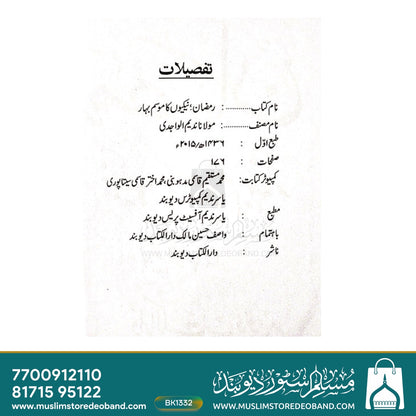 تفصیلات
نام کتاب ............ : رمضان؛ نیکیوں کا موسم بہار
نام مصنف ............ : مولانا ندیم الواجدی
طبع اوّل : ۱۴۳۶ھ/۲۰۱۵ء
صفحات : ۱۷۶
کمپیوٹر کتابت : محمد مستقیم قاسمی مدھوبنی، محمد اختر قاسمی سیتاپوری
یاسر ندیم کمپیوٹرس دیوبند
مطبع : یاسر ندیم آفسیٹ پریس دیوبند
باہتمام : واصف حسین مالک دارالکتاب دیوبند
ناشر : دارالکتاب دیوبند
7700912110
81715 95122
BK1332
www.muslimstoredeoband.com
مسلم اسٹور دیوبند
WWW.MUSLIMSTOREDEOBAND.COM